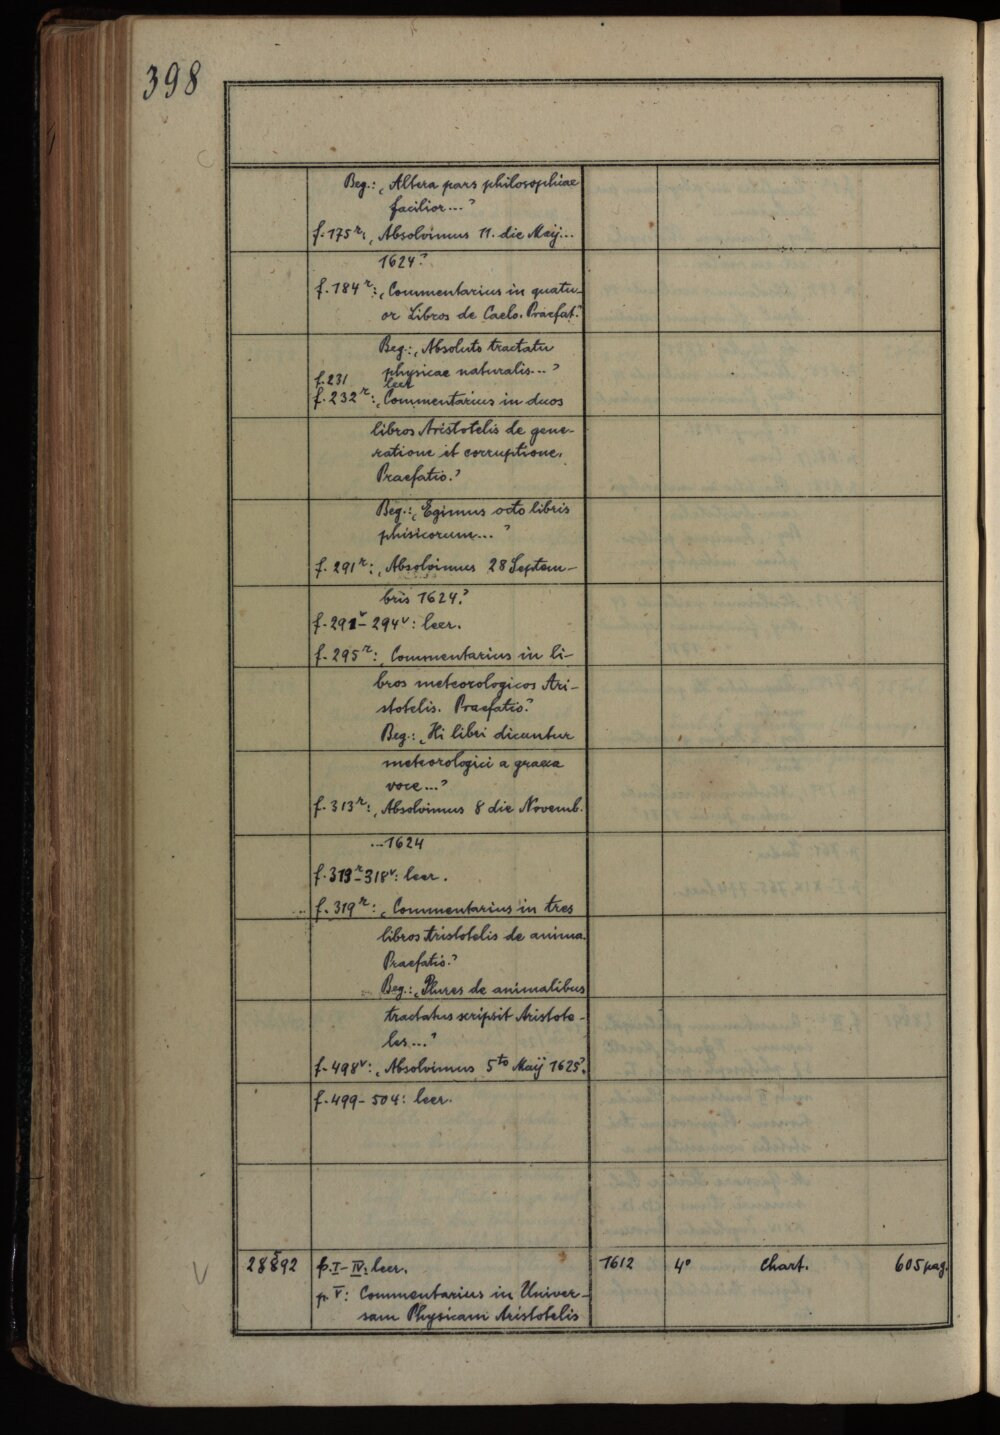 398
Beg.: „Altera pars philosophiae
facilior..."
f. 175r: „Absolvimus 11. die Maij...
1624"
f. 184r: „Commentarius in quatu-
or Libros de Caelo. Praefat."
Beg.: „Absoluto tractatu
physicae naturalis..."
f. 231 leer
f. 232r: „Commentarius in duos
libros Aristotelis de gene-
ratione et corruptione.
Praefatio."
Beg.: „Egimus octo libris
phisicorum..."
f. 291r: „Absolvimus 28 Septem-
bris 1624."
f. 291v-294v: leer.
f. 295r: „Commentarius in li-
bros meteorologicos Ari-
stotelis. Praefatio."
Beg.: „Hi libri dicuntur
meteorologici a graeca
voce..."
f. 313r: „Absolvimus 8 die Novemb.
...1624
f. 313r-318v: leer.
f. 319r: „Commentarius in tres
libros Aristotelis de anima.
Praefatio."
Beg.: „Plures de animalibus
tractatus scripsit Aristote-
les..."
f. 498v: „Absolvimus 5to Maij 1625".
f. 499-504: leer.
28892 p. I-IV: leer. 1612 4° Chart. 605 pag.
p. V: Commentarius in Univer-
sam Physicam Aristotelis